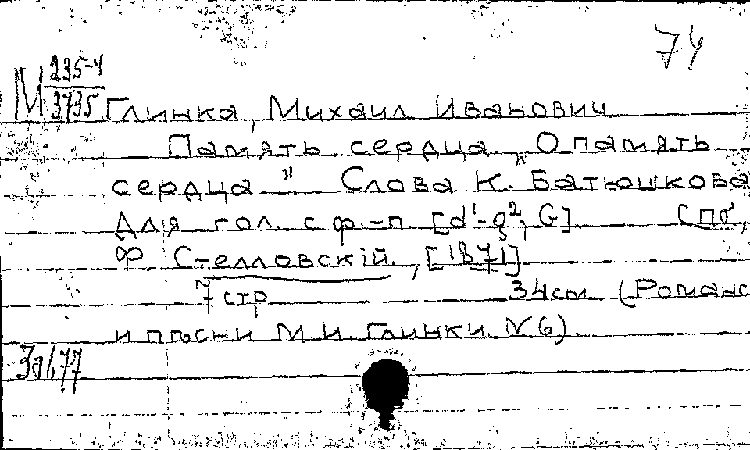 74
М 235-4
3735 Глинка, Михаил Иванович
Память сердца „О память
сердца" Слова К. Батюшкова
Для гол. с ф-п [d¹-g²; G] Спб,
Ф Стелловскій, [1871]
7 стр 34см (Романс
и песни М И Глинки N 6)